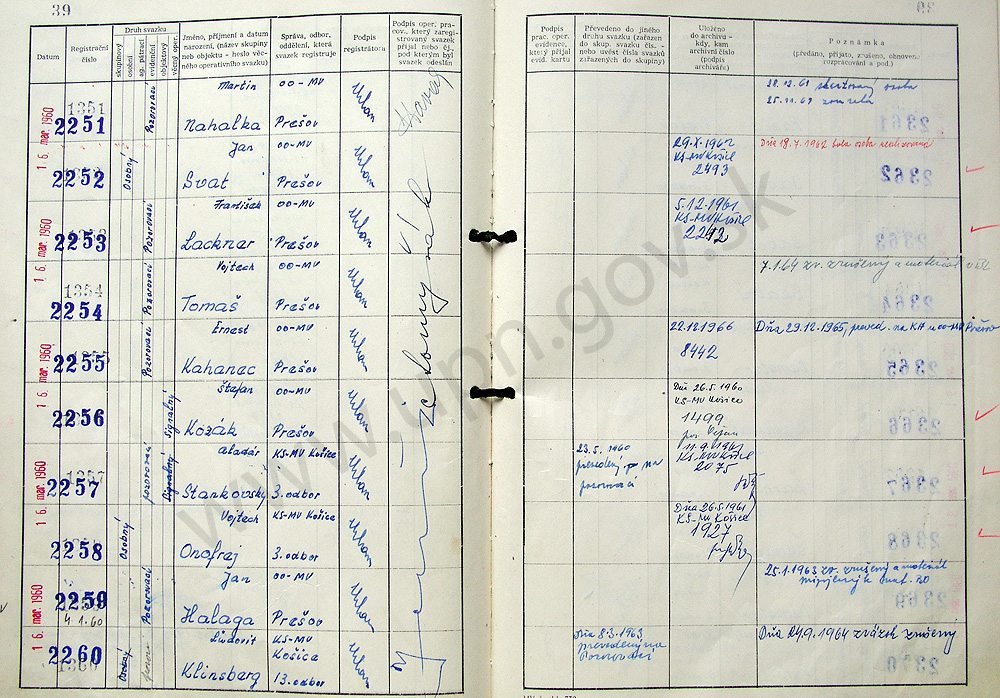 39
Datum
Registrační číslo
Druh svazku
skupinový
osobní
ag. pátrací
evidenční
objektový
věcný oper.
Jméno, příjmení a datum
narození, (název skupiny
neb objektu - heslo věc-
ného operativního svazku)
Správa, odbor,
oddělení, která
svazek registruje
Podpis
registrátora
Podpis oper. pra-
cov., který zaregi-
strovaný svazek
přijal nebo ěj.
pod kterým byl
svazek odeslán
16. mar. 1960
1351
2251
Pozorovací
Martin
Nahalka
OO-MV
Prešov
2252
Osobný
Jan
Svat
OO-MV
Prešov
16. mar. 1960
2253
Pozorovací
František
Lacknar
OO-MV
Prešov
1354
2254
Pozorovací
Vojtech
Tomaš
OO-MV
Prešov
16. mar. 1960
2255
Pozorovací
Ernest
Kahanec
OO-MV
Prešov
2256
Signalný
Štefan
Kozák
OO-MV
Prešov
16. mar. 1960
2257
pozorovací
Signalný
Aladár
Stankovský
KS-MV Košice
3. odbor
2258
Osobný
Vojtech
Onofraj
KS-MV Košice
3. odbor
16. mar. 1960
2259
4 1.60
Pozorovací
Jan
Halaga
OO-MV
Prešov
1360
2260
Osobný
Ľudovit
Klinsberg
KS-MV
Košice
13. odbor
39
Podpis
prac. oper.
evidence,
který přijal
evid. kartu
Převedeno do jiného
druhu svazku (zařazen
do skup. svazku čís. -
nebo uvést čísla svazků
zařazených do skupiny)
Uloženo
do archivu -
kdy, kam
archivní číslo
(podpis
archiváře)
Poznámka
(předáno, přijato, zrušeno, obnoveno,
rozpracováno a pod.)
28.12.61
osoba
25.11.61 zomrela
29.X.1962
KS-MV Košice
2493
Dňa 18.7.1962 bola osoba realizovaná
5.12.1961
KS-MV Košice
2212
7.1.64 zv. zrušený a materiál
22.12.1966
8442
Dňa 29.12.1965, preved. na KA Prešov
Dňa 26.5.1960
KS-MV Košice
1499
23.5.1960
na
pozorovací
11.9.1961
KS-MV Košice
2075
Dňa 26.5.1961
KS-MV Košice
1927
25.1.1963 zv. zrušený a materiál
Dňa 8.3.1963
prevedený na
Pozorovací
Dňa 24.9.1964 zväzok zrušený
www.upn.gov.sk